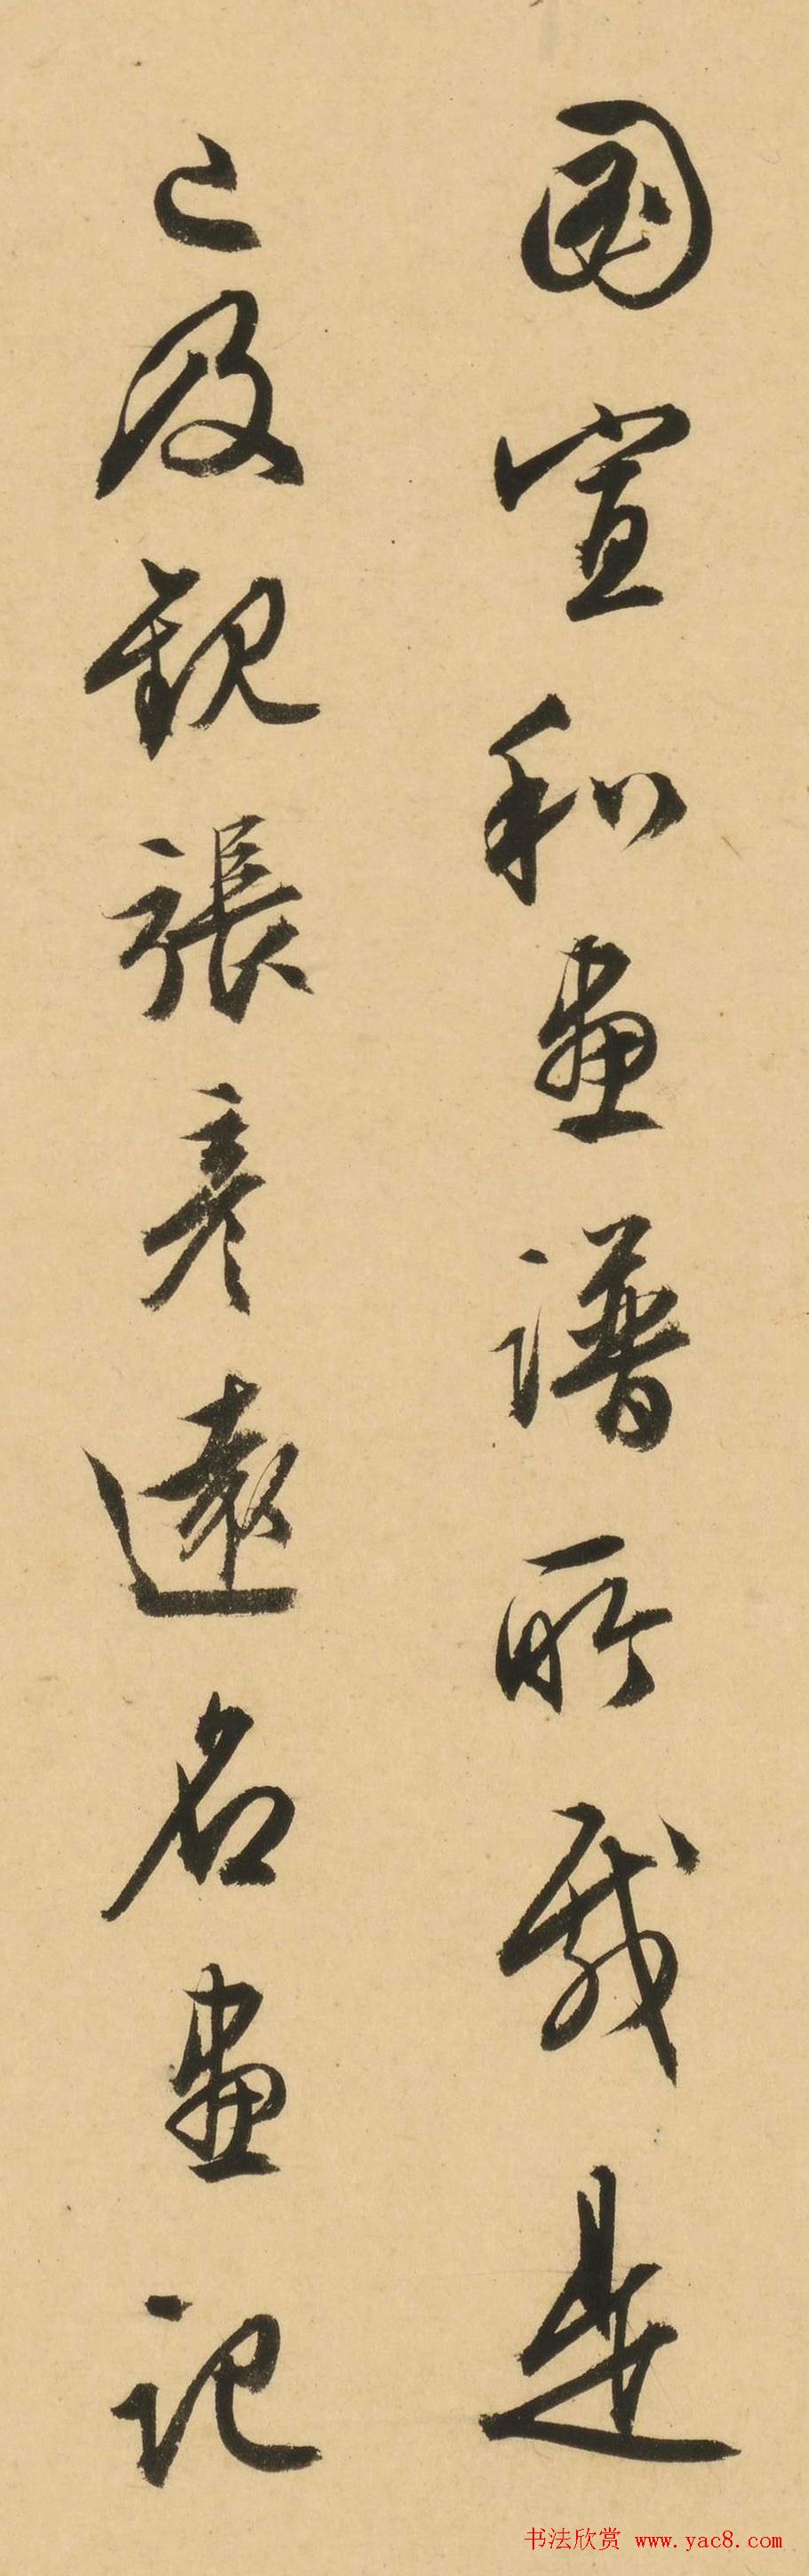 國宣和畫譜所載是
已及觀張彥遠名畫記
书法欣赏 www.yac8.com